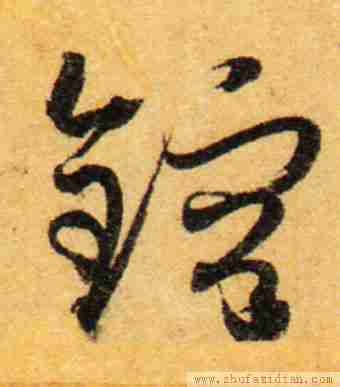 鎔
www.shufazidian.com